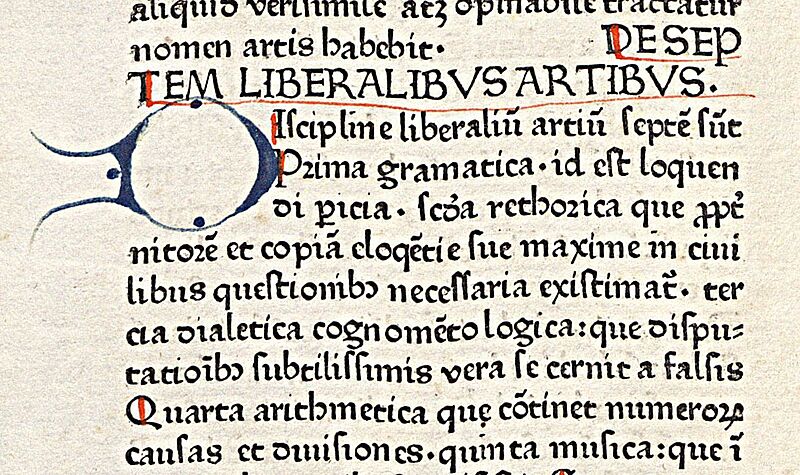 aliquid verisimile atqꝫ opinabile tractatur
nomen artis habebit. DE SEP
TEM LIBERALIBVS ARTIBVS.
DIscipline liberaliū artiū septē sūt
Prima gramatica. id est loquen
di ꝑicia. scd̄a rethorica que ꝓpt̄
nitorē et copiā eloqētie sue maxime in ciui
libus questionibꝫ necessaria existimat᷑. ter
cia dialetica cognomēto logica: que dispu⸗
tatioībꝫ subtilissimis vera se cernit a falsis
Quarta arithmetica quę cōtinet numeroꝝ
causas et diuisiones. quinta musica: que ī